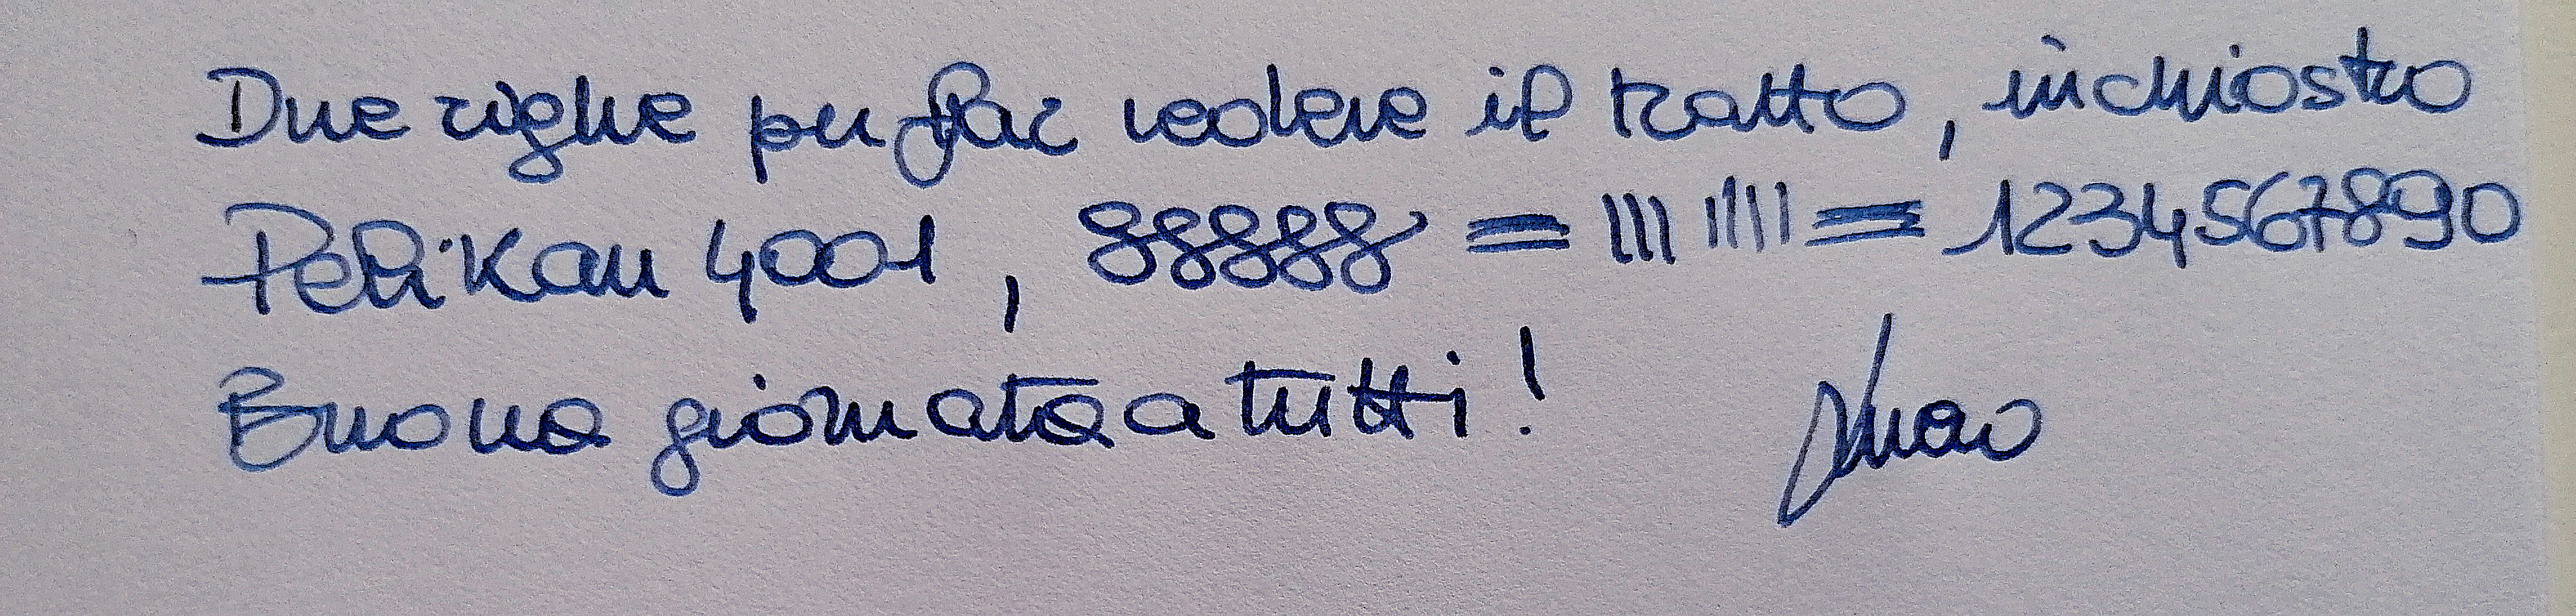 Due righe per far vedere il tratto, inchiostro
Pelikan 4001, 88888 = ||| |||| = 1234567890
Buona giornata a tutti!